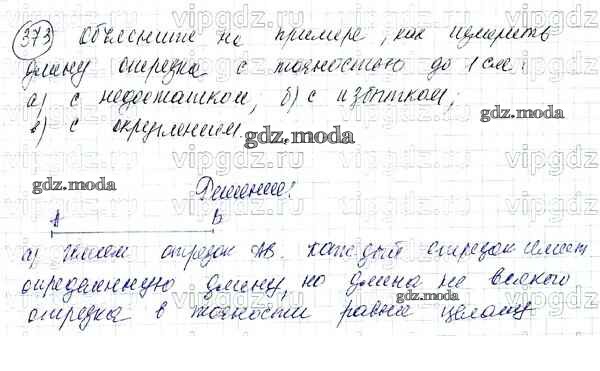 373 Объясните на примере, как измерить
длину отрезка с точностью до 1 см:
а) с недостатком, б) с избытком;
в) с округлением.
gdz.moda
gdz.moda
Решение:
А B
а) Имеем отрезок АВ. Каждый отрезок имеет
определенную длину, но длина не всякого
gdz.moda
отрезка в точности равна целому
vipgdz vipgdz vipgdz vipgdz